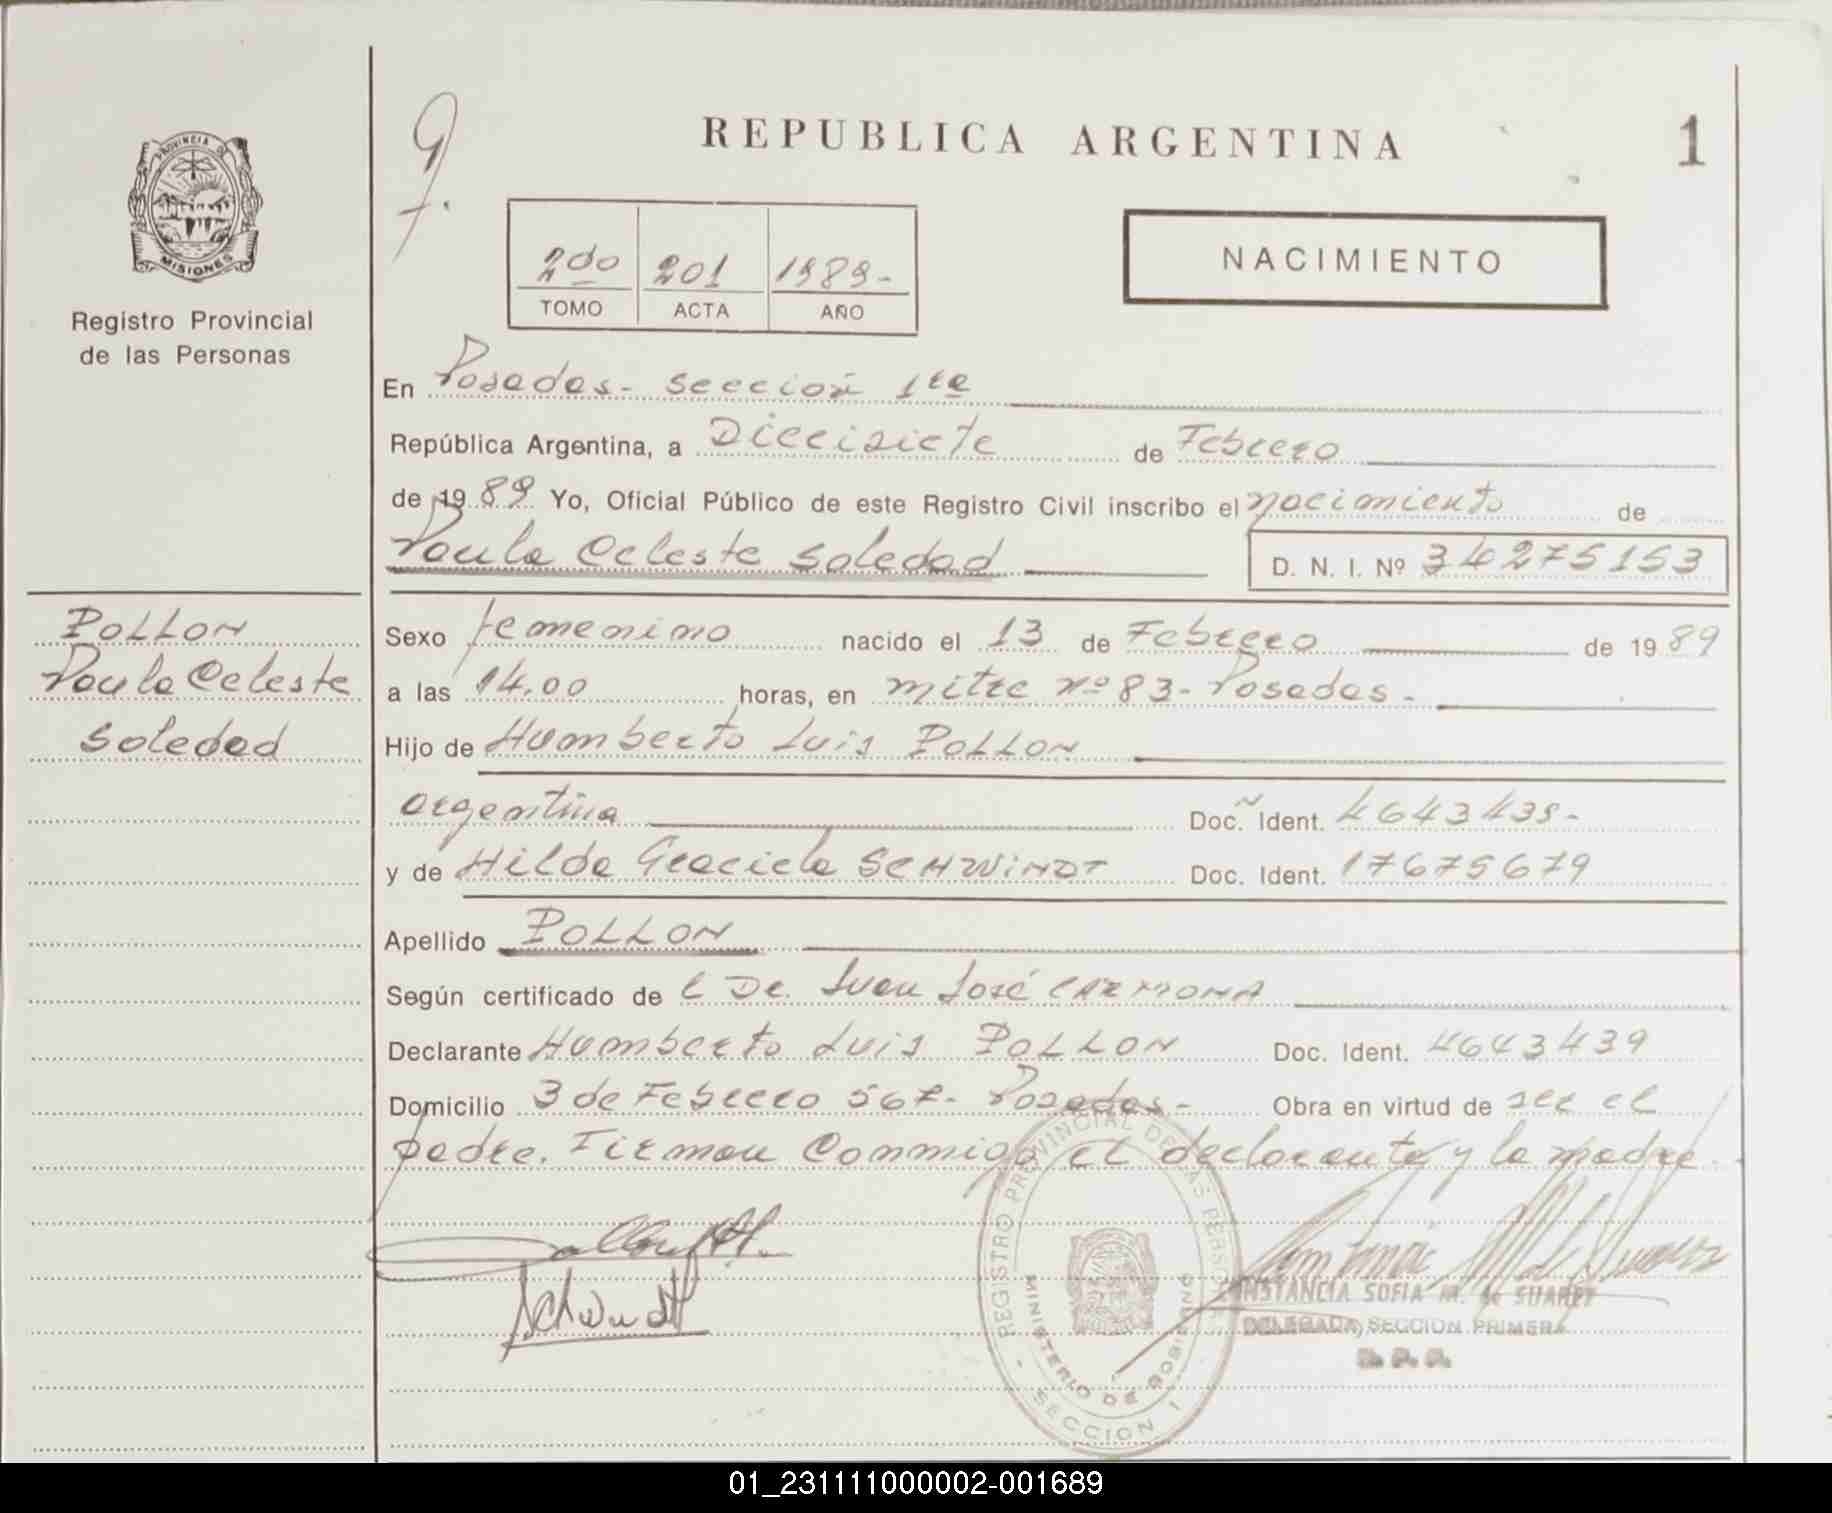 PROVINCIA DE
MISIONES
Registro Provincial
de las Personas
POLLON
Paula Celeste
Soledad
REPUBLICA ARGENTINA
1
2do 201 1989-
TOMO ACTA AÑO
NACIMIENTO
En Posadas- Sección 1ra
República Argentina, a Diecisiete de Febrero
de 1989 Yo, Oficial Público de este Registro Civil inscribo el nacimiento de
Paula Celeste Soledad D. N. I. Nº 34275153
Sexo femenino nacido el 13 de Febrero de 1989
a las 14.00 horas, en mitre nº 83- Posadas-
Hijo de Humberto Luis POLLON
argentina Doc. Ident. 4643439-
y de Hilda Graciela SCHWINDT Doc. Ident. 17675679
Apellido POLLON
Según certificado de l Dr. Juan José CARMONA
Declarante Humberto Luis POLLON Doc. Ident. 4643439
Domicilio 3 de Febrero 567- Posadas- Obra en virtud de ser el
padre. Firman Conmigo el declarante y la madre.
REGISTRO PROVINCIAL DE LAS PERSONAS
MINISTERIO DE GOBIERNO
- SECCION 1
Schwindt
CONSTANCIA SOFIA M. de SUAREZ
DELEGADA SECCION PRIMERA
R. P. P.
01_231111000002-001689